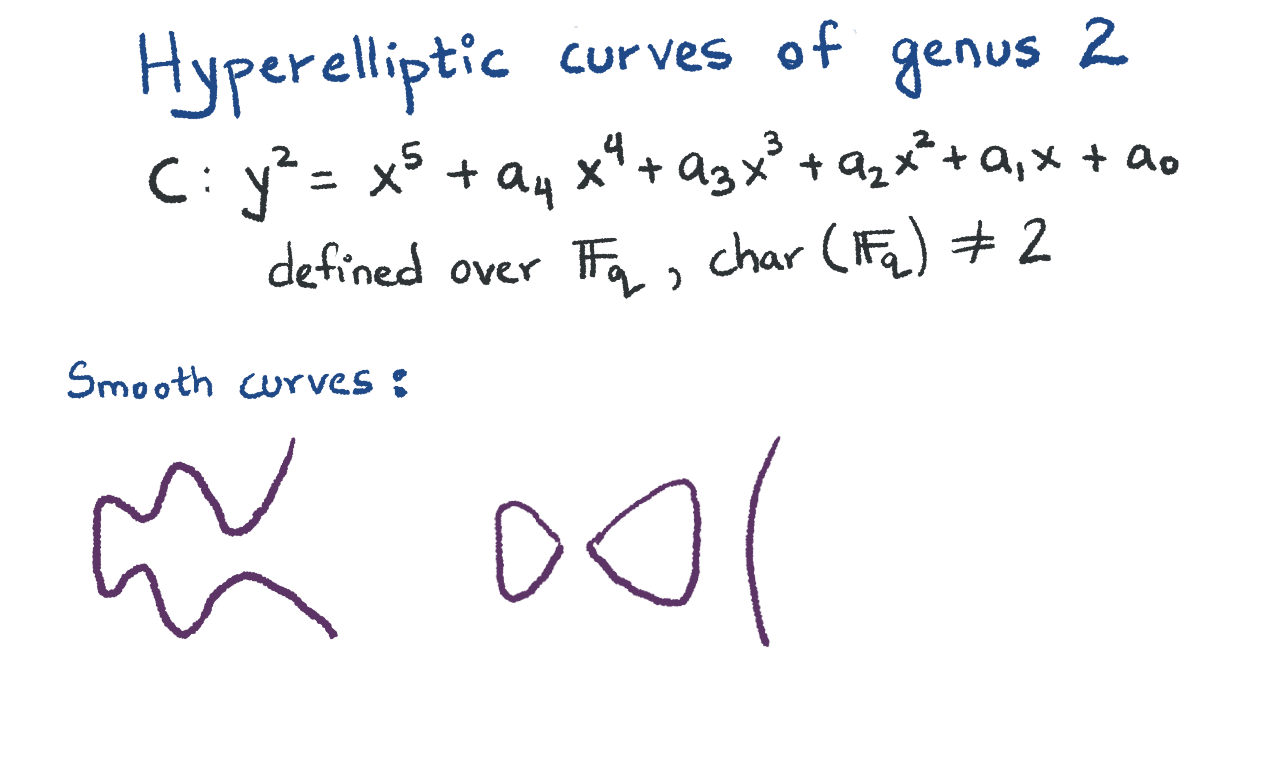 Hyperelliptic curves of genus 2
C: y² = x⁵ + a₄ x⁴ + a₃x³ + a₂x² + a₁x + a₀
defined over 𝔽q, char (𝔽q) ≠ 2
Smooth curves: